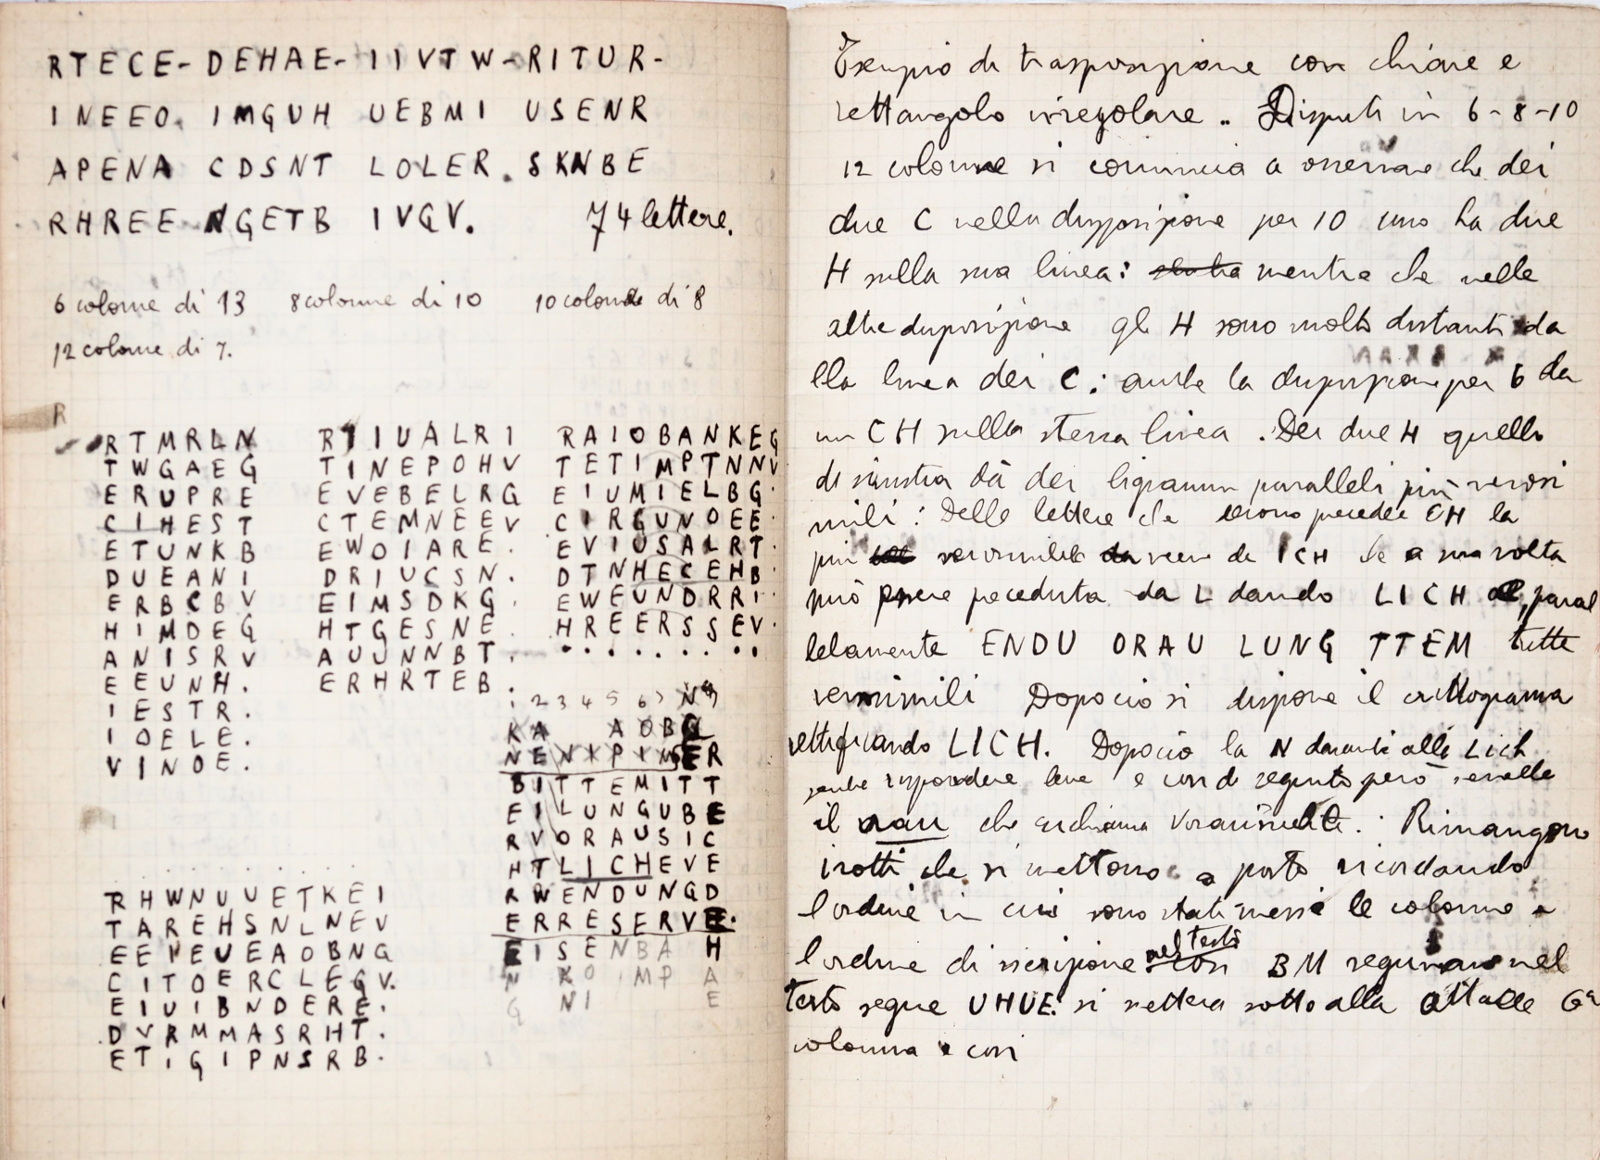 RTECE- DEHAE- IIVTW- RITUR-
INEEO. IMGUH UEBMI USENR
APENA CDSNT LOLER. SKNBE
RHREE NGETB IVGV. 74 lettere.
6 colonne di 13 8 colonne di 10 10 colonne di 8
12 colonne di 7.
R
RTMRLN
TWGAEG
ERUPRE
CIHEST
ETUNKB
DUEANI
ERBCBV
HIMDEG
ANISRV
EEUNH.
IESTR.
IOELE.
VINOE.
RIIUALRI
TINEPOHV
EVEBELRG
CTEMNEEV
EWOIARE.
DRIUCSN.
EIMSDKG.
HTGESNE.
AUUNNBT.
ERHRTEB.
RAIOBANKEG
TETIMPTNNV
EIUMIELBG.
CIRGUNOEE.
EVIUSALRT.
DTNHECEHB.
EWEUNDRRI.
HREERSSEV.
RHWNUUETKEI
TAREHSNLNEV
EEIEUEAOBNG
CITOERCLEGV.
EIUIBNDERE.
DVRMMASRHT.
ETIGIPNSRB.
1 2 3 4 5 6 7
KA AOBG
NENIPINSER
BITTEMITT
EILUNGUBE
RVORAUSIC
HTLICHEVE
RWENDUNGD
ERRESERVE.
EISENBA H
N KO MP A
G NI E
Esempio di trasposizione con chiave e
rettangolo irregolare.. Disposti in 6-8-10
12 colonne si comincia a osservare che dei
due C nella disposizione per 10 uno ha due
H sulla sua linea: mentre che nelle
altre disposizione gli H sono molto distanti da
lla linea dei C: anche la disposizione per 6 da
un CH sulla stessa linea. Dei due H quello
di sinistra dà dei bigrammi paralleli più verosi
mili: Delle lettere che precedere CH la
più verosimile viene da ICH che a sua volta
può essere preceduta da L dando LICH e paral
lelamente ENDU ORAU LUNG TTEM tutte
verosimili Dopociò si dispone il crittogramma
rettificando LICH. Dopociò la N davanti alli Lich
sembra rispondere bene e così di seguito però
il rau che richiama Voraus: Rimangono
i rotti che si mettono a posto ricordando
l'ordine in cui sono stati messi le colonne e
l'ordine di iscrizione nel testo così BM seguivano nel
testo segue UHUE. si mettera sotto alla 6ª
colonna e così